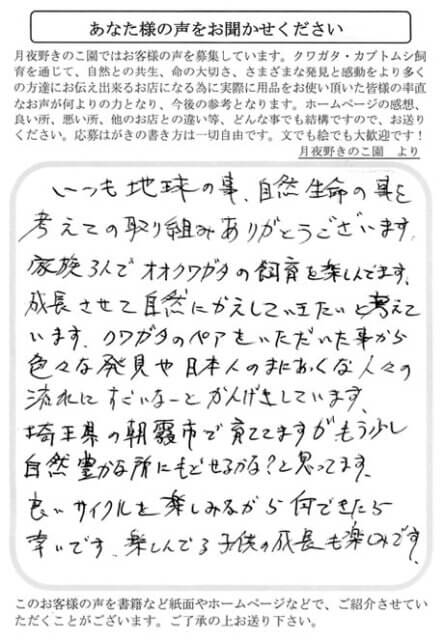 あなた様の声をお聞かせください
月夜野きのこ園ではお客様の声を募集しています。クワガタ・カブトムシ飼
育を通じて、自然との共生、命の大切さ、さまざまな発見と感動をより多く
の方達にお伝え出来るお店になる為に実際に用品をお使い頂いた皆様の率直
なお声が何よりの力となり、今後の参考となります。ホームページの感想、
良い所、悪い所、他のお店との違い等、どんな事でも結構ですので、お送り
ください。応募はがきの書き方は一切自由です。文でも絵でも大歓迎です！
月夜野きのこ園 より
いつも地球の事、自然生命の事を
考えての取り組みありがとうございます。
家族3人でオオクワガタの飼育を楽しんでます。
成長させて自然にかえしていきたいと考えて
います。クワガタのペアをいただいた事から
色々な発見や日本人の
流れにすごいなーとかんげきしています。
埼玉県の朝霞市で育ててますがもう少し
自然豊かな所にもどせるかな？と思ってます。
良いサイクルを楽しみながら何できたら
幸いです。楽しんでる子供の成長も楽しみです。
このお客様の声を書籍など紙面やホームページなどで、ご紹介させてい
ただくことがございます。ご了承の上お送り下さい。